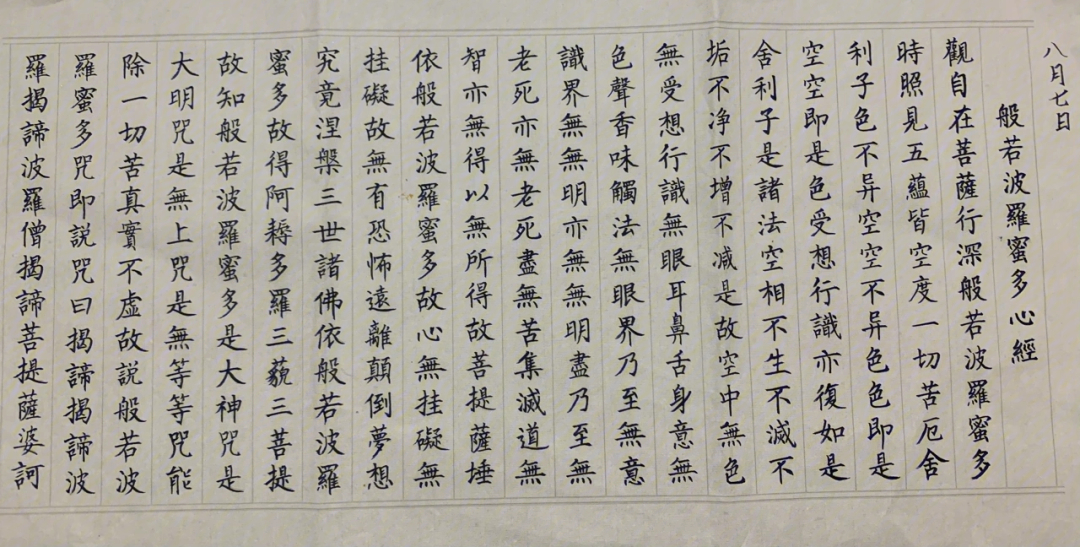 八月七日
般若波羅蜜多心經
觀自在菩薩行深般若波羅蜜多
時照見五蘊皆空度一切苦厄舍
利子色不异空空不异色色即是
空空即是色受想行識亦復如是
舍利子是諸法空相不生不滅不
垢不净不增不减是故空中無色
無受想行識無眼耳鼻舌身意無
色聲香味觸法無眼界乃至無意
識界無無明亦無無明盡乃至無
老死亦無老死盡無苦集滅道無
智亦無得以無所得故菩提薩埵
依般若波羅蜜多故心無挂礙無
挂礙故無有恐怖遠離顛倒夢想
究竟涅槃三世諸佛依般若波羅
蜜多故得阿耨多羅三藐三菩提
故知般若波羅蜜多是大神咒是
大明咒是無上咒是無等等咒能
除一切苦真實不虛故説般若波
羅蜜多咒即説咒曰揭諦揭諦波
羅揭諦波羅僧揭諦菩提薩婆訶